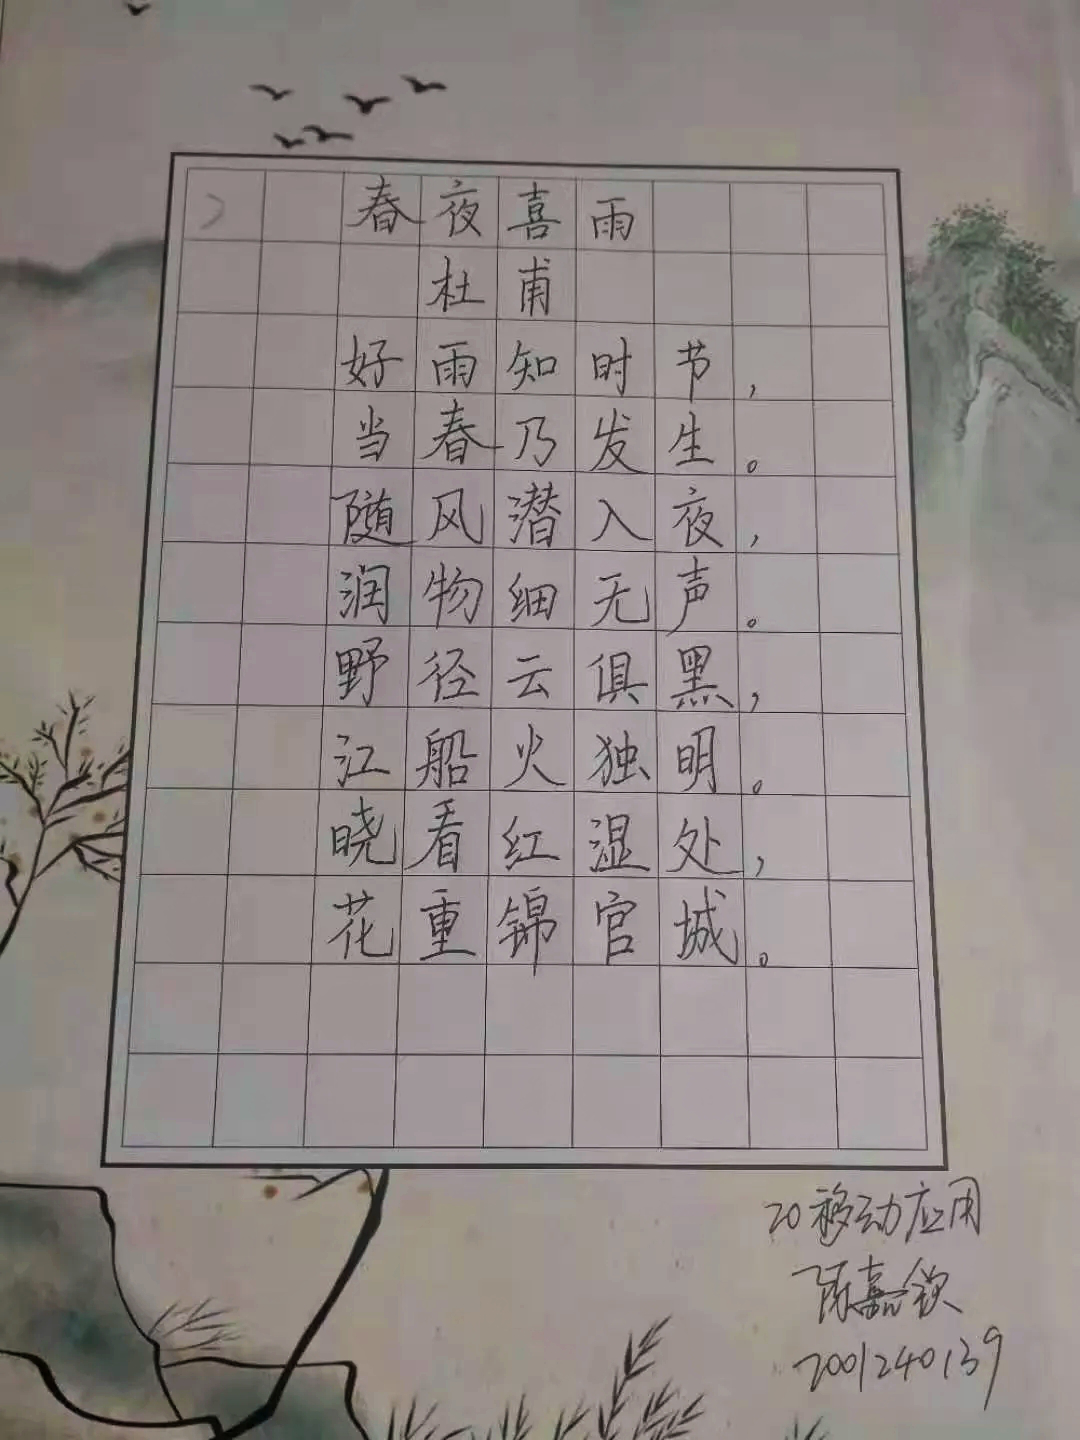 春夜喜雨
杜甫
好雨知时节，
当春乃发生。
随风潜入夜，
润物细无声。
野径云俱黑，
江船火独明。
晓看红湿处，
花重锦官城。
20移动应用
陈嘉钦
2001240139